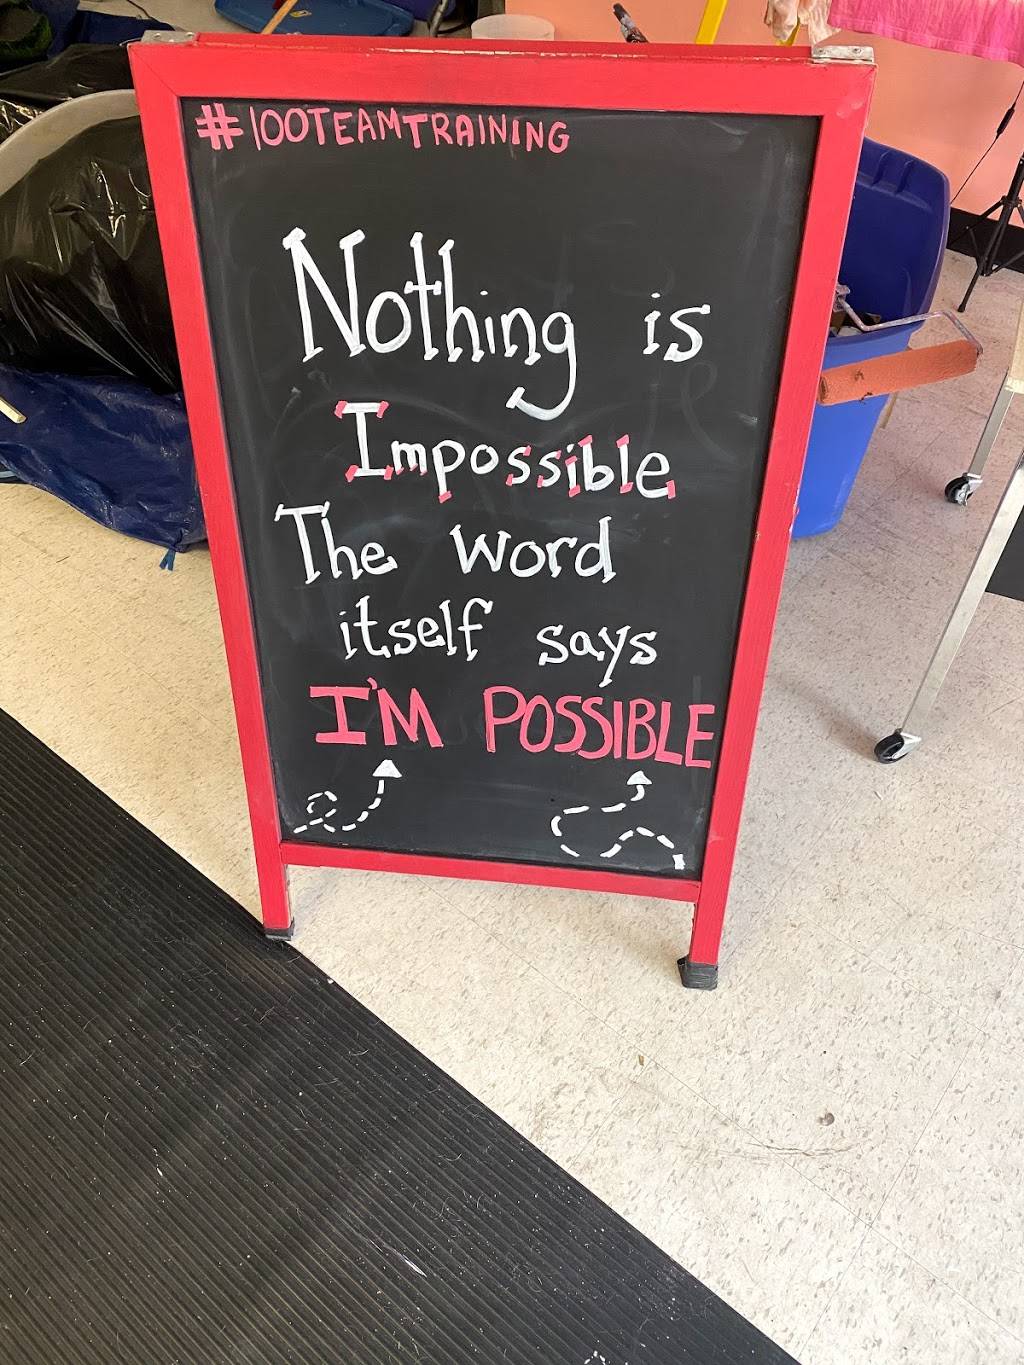 #100TEAMTRAINING
Nothing is
Impossible
The word
itself says
I'M POSSIBLE